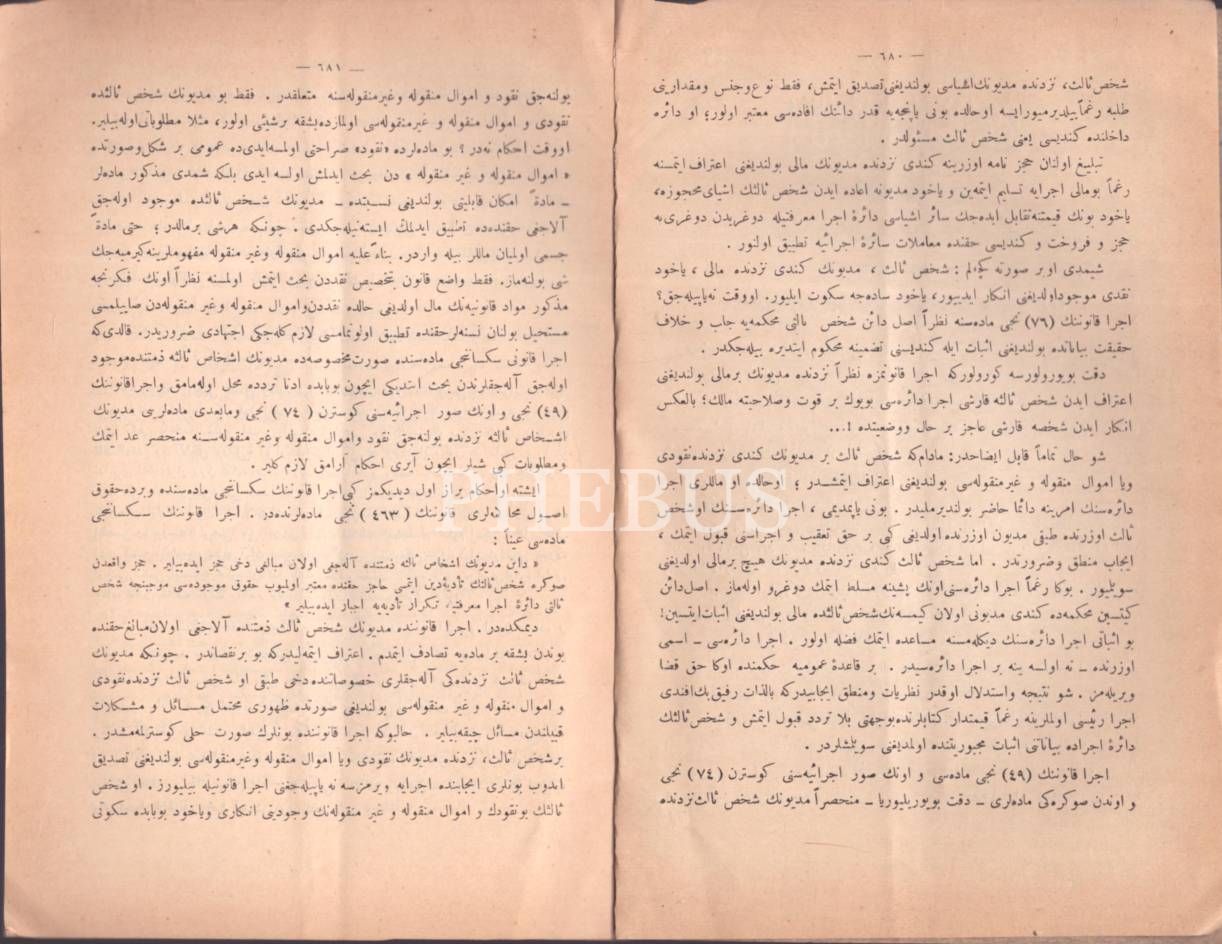 — ٦٨٠ —
شخص ثالث، نزدنده مدیونك اشیاسی بولندیغنی تصدیق ایتمش، فقط نوع وجنس ومقدارینی
طلبه رغماً بیلدیرمیورایسه او حالده بونی یاپنجه‌یه قدر دائنك افاده‌سی معتبر اولور؛ او دائره
داخلنده كندیسی یعنی شخص ثالث مسئولدر .
تبلیغ اولنان حجز نامه اوزرینه كندی نزدنده مدیونك مالی بولندیغنی اعتراف ایتمسنه
رغماً بومالی اجرایه تسلیم ایتمه‌ین و یاخود مدیونه اعاده ایدن شخص ثالثك اشیای محجوزه،
یاخود بونك قیمتنه تقابل ایده‌جك سائر اشیاسی دائرهٔ اجرا معرفتیله دوغریدن دوغری‌یه
حجز و فروخت و كندیسی حقنده معاملات سائرهٔ اجرائیه تطبیق اولنور .
شیمدی اوبر صورته كچه‌لم : شخص ثالث ، مدیونك كندی نزدنده مالی ، یاخود
نقدی موجود اولدیغنی انكار ایدییور، یاخود ساده‌جه سكوت ایلیور. او وقت نه یاپیله‌جق؟
اجرا قانوننك (٧٦) نجی ماده‌سنه نظراً اصل دائن شخص ثالثی محكمه‌یه جلب و خلاف
حقیقت بیاناتده بولندیغنی اثبات ایله كندیسنی تضمینه محكوم ایتدیره بیله‌جكدر .
دقت بویورولورسه كورولوركه اجرا قانونمزه نظراً نزدنده مدیونك بر مالی بولندیغنی
اعتراف ایدن شخص ثالثه قارشی اجرا دائره‌سی بویوك بر قوت وصلاحیته مالك؛ بالعكس
انكار ایدن شخصه قارشی عاجز بر حال ووضعیتده !...
شو حال تماماً قابل ایضاحدر: مادام‌كه شخص ثالث بر مدیونك كندی نزدنده نقودی
ویا اموال منقوله و غیرمنقوله‌سی بولندیغنی اعتراف ایتمشدر ؛ اوحالده او ماللری اجرا
دائره‌سنك امرینه دائما حاضر بولندیرملیدر . بونی یاپمدیمی ، اجرا دائره‌سنك اوشخص
ثالث اوزرنده طبقی مدیون اوزرنده اولدیغی كبی بر حق تعقیب و اجراسنی قبول ایتمك ،
ایجاب منطق وضرورتدر . اما شخص ثالث كندی نزدنده مدیونك هیچ برمالی اولدیغنی
سویلمیور . بوكا رغماً اجرا دائره‌سنی اونك پشینه مسلط ایتمك دوغرو اوله‌ماز . اصل دائن
كیتسین محكمه‌ده كندی مدیونی اولان كیمسه‌نك شخص ثالثده مالی بولندیغنی اثبات ایتسین!
بو اثباتی اجرا دائره‌سنك دیكله‌مسنه مساعده ایتمك فضله اولور . اجرا دائره‌سی ـ اسمی
اوزرنده ـ نه اولسه ینه بر اجرا دائره‌سیدر . بر قاعدهٔ عمومیه حكمنده اوكا حق قضا
ویریله‌مز . شو نتیجه واستدلال اوقدر نظریات ومنطق ایجابیدركه بالذات رفیق بك افندی
اجرا رئیسی اولملرینه رغماً قیمتدار كتابلرنده بوجهتی بلا تردد قبول ایتمش و شخص ثالثك
دائرهٔ اجراده بیاناتنی اثبات مجبوریتنده اولمدیغنی سویلمشلردر .
اجرا قانوننك (٤٩) نجی ماده‌سی و اونك صور اجرائیه‌سنی كوسترن (٧٤) نجی
و اوندن صوكره‌كی ماده‌لری ـ دقت بویوریلیوریا ـ منحصراً مدیونك شخص ثالث نزدنده
— ٦٨١ —
بولنه‌جق نقود و اموال منقوله وغیرمنقوله‌سنه متعلقدر . فقط بو مدیونك شخص ثالثده
نقودی و اموال منقوله و غیرمنقوله‌سی اولمازده بشقه برشیئی اولور، مثلا مطلوباتی اوله‌بیلیر.
او وقت احكام نه‌در ؟ بو ماده‌لرده «نقود» صراحتی اولمسه‌ایدی‌ده عمومی بر شكل وصورتده
« اموال منقوله و غیر منقوله » دن بحث ایدلمش اولسه ایدی بلكه شمدی مذكور ماده‌لر
ـ مادةً امكان قابلیتی بولندیغی نسبتده ـ مدیونك شخص ثالثده موجود اوله‌جق
آلاجغی حقنده‌ده تطبیق ایدلمك ایسته‌نیله‌جكدی . چونكه هرشی برمالدر ؛ حتی مادةً
جسمی اولمیان ماللر بیله واردر. بناءً علیه اموال منقوله وغیر منقوله مفهوملرینه كیرمیه‌جك
شی بولنه‌ماز. فقط واضع قانون بتخصیص نقددن بحث ایتمش اولمسنه نظراً اونك فكرنجه
مذكور مواد قانونیه‌نك مال اولدیغی حالده نقددن واموال منقوله وغیر منقوله‌دن صاییلمسی
مستحیل بولنان نسنه‌لر حقنده تطبیق اولونمامسی لازم كله‌جكی اجتهادی ضروریدر. قالدی‌كه
اجرا قانونی سكسانجی ماده‌سنده صورت مخصوصه‌ده مدیونك اشخاص ثالثه ذمتنده موجود
اوله‌جق آله‌جقلرندن بحث ایتدیكی ایچون بوبابده ادنا تردده محل اوله‌مامق واجرا قانوننك
(٤٩) نجی و اونك صور اجرائیه‌سنی كوسترن ( ٧٤ ) نجی ومابعدی ماده‌لرینی مدیونك
اشخاص ثالثه نزدنده بولنه‌جق نقود واموال منقوله وغیر منقوله‌سنه منحصر عد ایتمك
ومطلوبات كبی شیلر ایچون آیری احكام آرامق لازم كلیر .
ایشته او احكام براز اول دیدیكمز كبی اجرا قانوننك سكسانجی ماده‌سنده وبرده حقوق
اصول محاكمه‌لری قانوننك ( ٤٦٣ ) نجی ماده‌لرنده‌در . اجرا قانوننك سكسانجی
ماده‌سی عیناً :
« داین مدیونك اشخاص ثالثه ذمتنده آله‌جغی اولان مبالغی دخی حجز ایده‌بیلیر . حجز واقعدن
صوكره شخص ثالثك تأدیهٔ دین ایتمسی حاجز حقنده معتبر اولمیوب حقوق موجوده‌سی موجبنجه شخص
ثالثی دائرهٔ اجرا معرفتیله تكرار تأدیه‌یه اجبار ایده‌بیلیر »
دیمكده‌در . اجرا قانوننده مدیونك شخص ثالث ذمتنده آلاجغی اولان مبالغ حقنده
بوندن بشقه بر ماده‌یه تصادف ایتمدم . اعتراف ایتمه‌لیدركه بو برنقصاندر . چونكه مدیونك
شخص ثالث نزدنده‌كی آله‌جقلری خصوصاتنده دخی طبقی او شخص ثالث نزدنده نقودی
و اموال منقوله و غیر منقوله‌سی بولندیغی صورتده ظهوری محتمل مسائل و مشكلات
قبیلندن مسائل چیقه‌بیلیر . حالبوكه اجرا قانوننده بونلرك صورت حلی كوسترلمه‌مشدر .
برشخص ثالث، نزدنده مدیونك نقودی ویا اموال منقوله وغیرمنقوله‌سی بولندیغنی تصدیق
ایدوب بونلری ایجابنده اجرایه ویرمزسه نه یاپیله‌جغنی اجرا قانونیله بیلیورز . او شخص
ثالثك بونقودك و اموال منقوله و غیر منقوله‌نك وجودینی انكاری ویاخود بوبابده سكوتی
PHEBUS